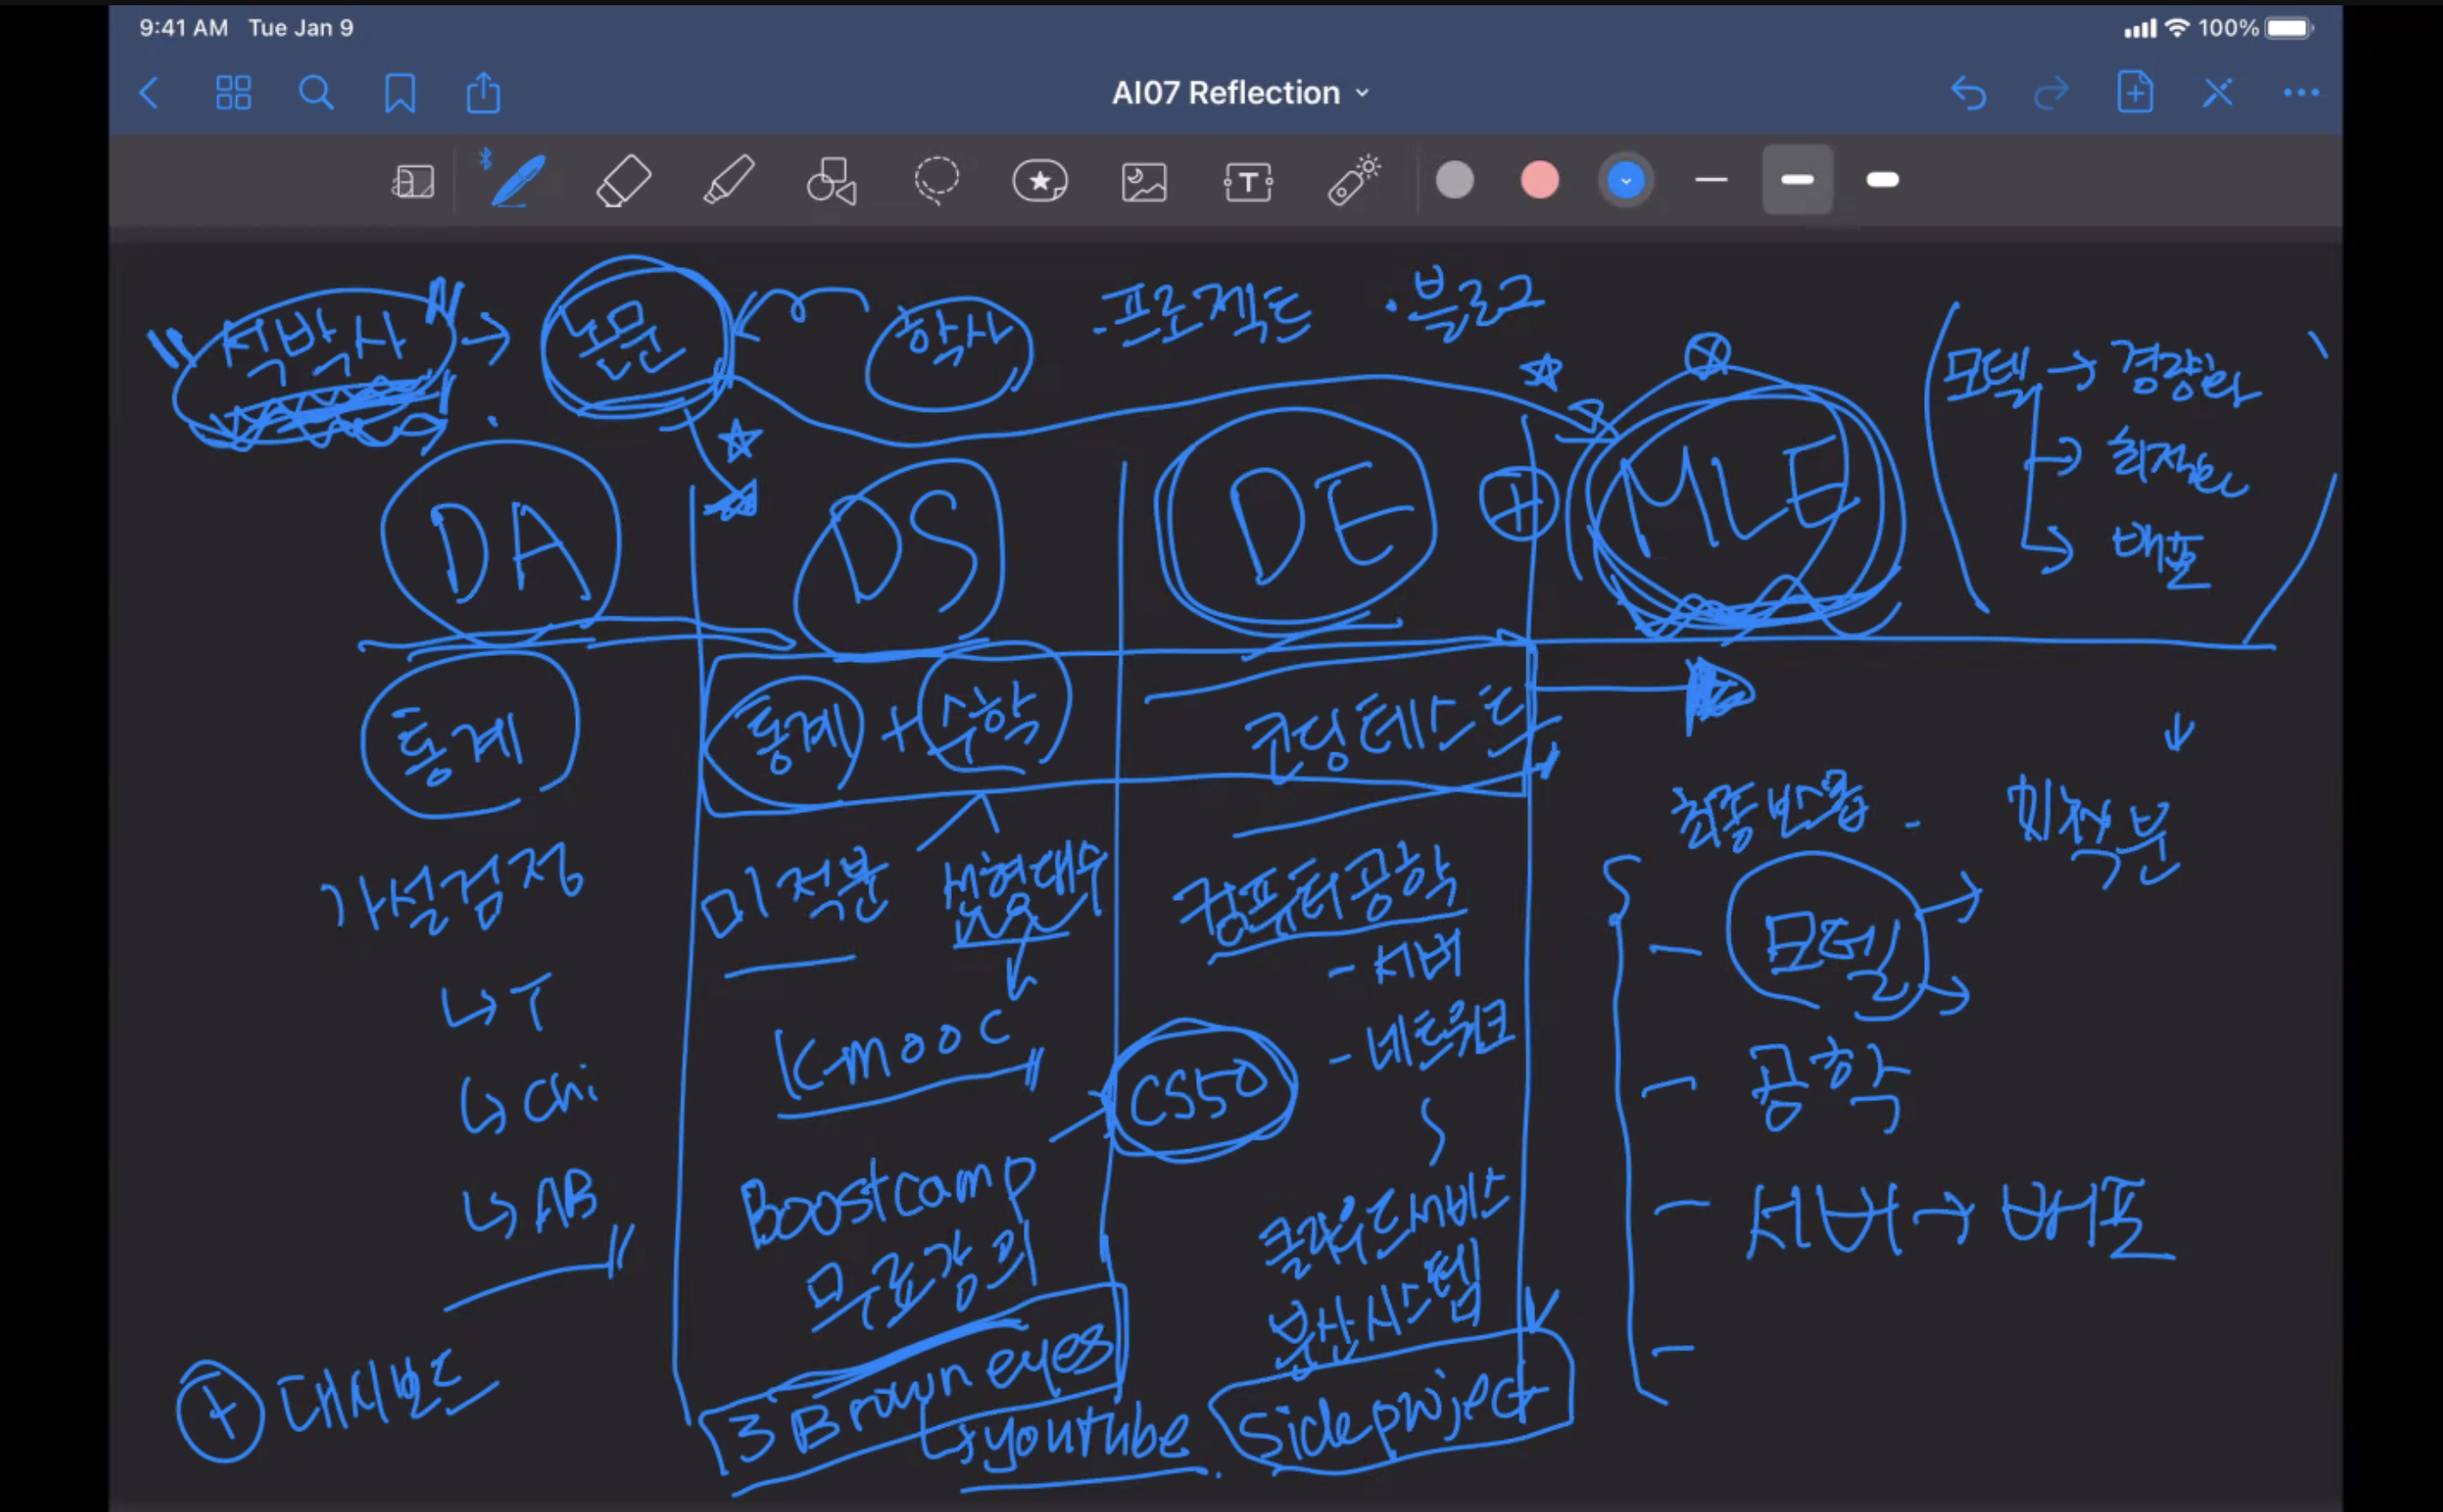 9:41 AM Tue Jan 9
100%
AI07 Reflection
석박사 → 논문
학사
- 프로젝트
· 블로그
DA
DS
DE
MLE
모델 → 경량화
→ 최적화
→ 배포
통계
통계 + 수학
코딩테스트
가설검정
↳ T
↳ Chi
↳ AB
+ 대시보드
미적분
선형대수
Kmooc
Boostcamp
무료강의
3 Brown eyes
↳ youtube
컴퓨터공학
- 서버
- 네트워크
CS50
클라우드서비스
분산시스템
Side project
- 모델
- 공학
- 서버 → 배포